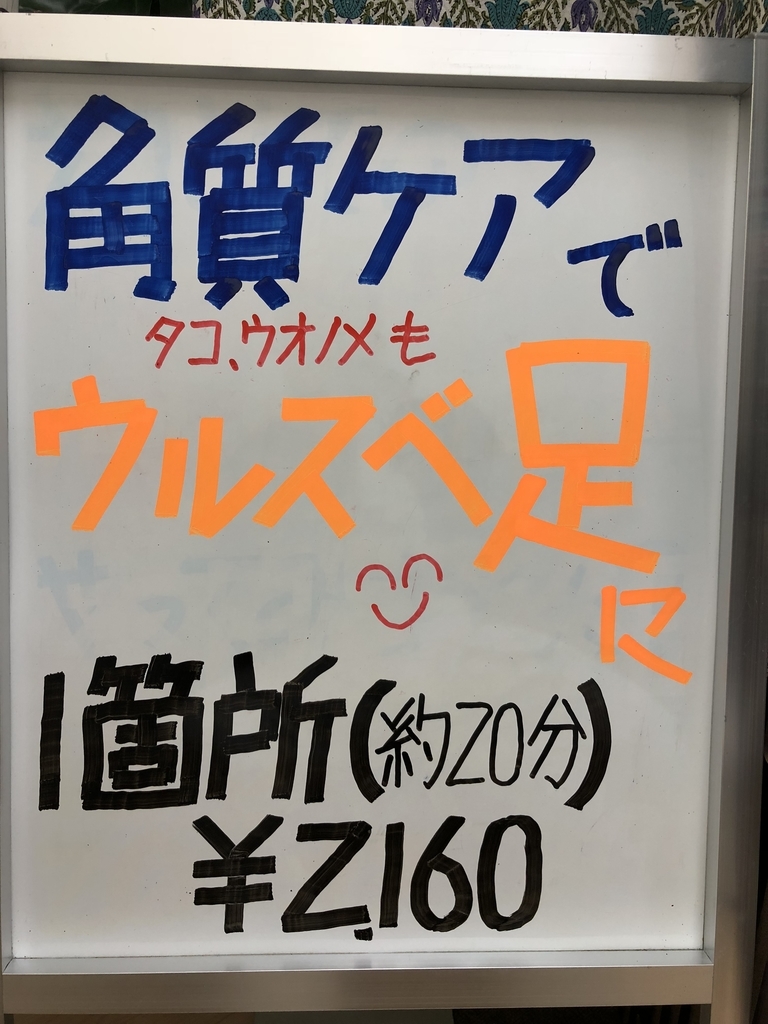 角質ケアで
タコ、ウオノメも
ウルスベ足
に
1箇所(約20分)
¥2,160